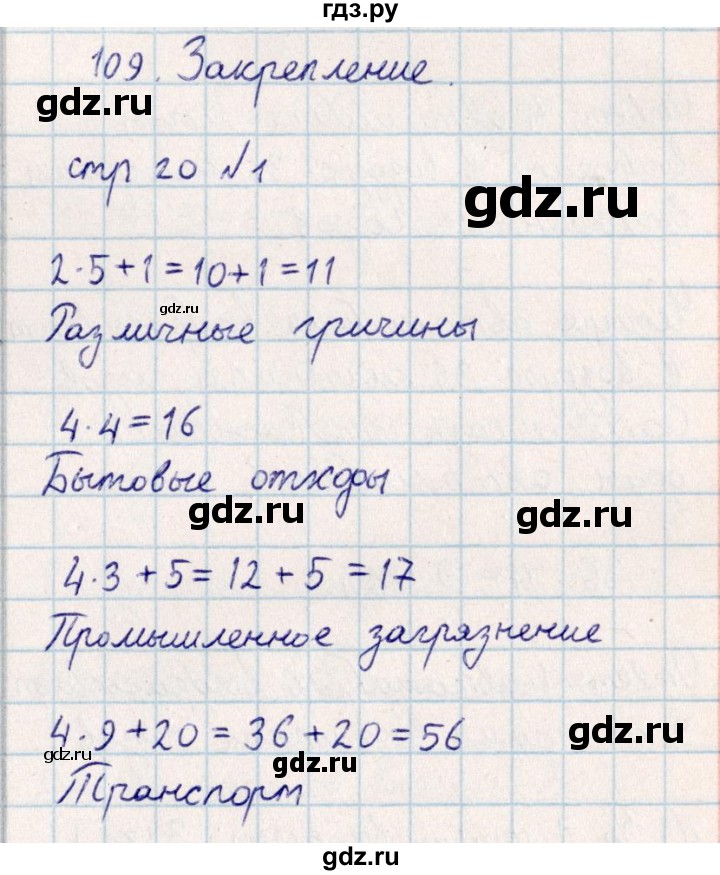 гдз.ру
109. Закрепление.
gdz.ru
стр 20 №1
gdz.ru
2·5+1=10+1=11
gdz.ru
Различные причины
4·4=16
Бытовые отходы
gdz.ru
gdz.ru
4·3+5=12+5=17
Промышленное загрязнение
4·9+20=36+20=56
gdz.ru
gdz.ru
gdz.ru
Транспорт
gdz.ru